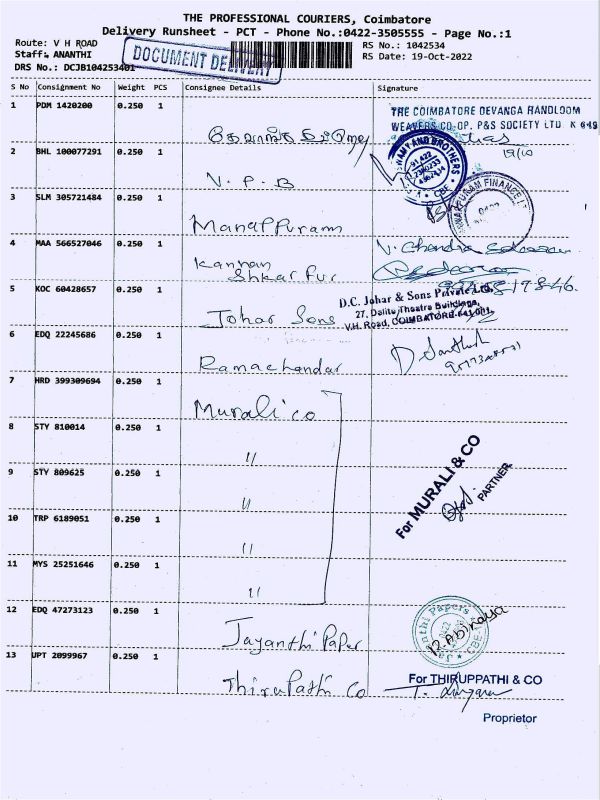 THE PROFESSIONAL COURIERS, Coimbatore
Delivery Runsheet - PCT - Phone No.:0422-3505555 - Page No.:1
Route: V H ROAD
RS No.: 1042534
Staff: ANANTHI
DOCUMENT DELIVERY
RS Date: 19-Oct-2022
DRS No.: DCJB104253401
S No Consignment No Weight PCS Consignee Details Signature
1 PDM 1420200 0.250 1
THE COIMBATORE DEVANGA HANDLOOM
WEAVERS CO.OP. P&S SOCIETY LTD K 649
19/10
2 BHL 100077291 0.250 1 V. P. B
3 SLM 305721484 0.250 1 Manappuram
4 MAA 566527046 0.250 1 Kannan
V. Chandra
5 KOC 60428657 0.250 1 Johar Sons
D.C. Johar & Sons Private Ltd.
27, Dalite Theatre Buildings,
V.H. Road, COIMBATORE-641 001.
6 EDQ 22245686 0.250 1 Ramachandar
D. Santhosh
7 HRD 399309694 0.250 1 Murali co
8 STY 810014 0.250 1 "
9 STY 809625 0.250 1 "
10 TRP 6189051 0.250 1 "
For MURALI & CO
PARTNER
11 MYS 25251646 0.250 1 "
12 EDQ 47273123 0.250 1 Jayanthi Paper
R. Abinaya
13 UPT 2099967 0.250 1 Thirupathi Co
For THIRUPPATHI & CO
Proprietor